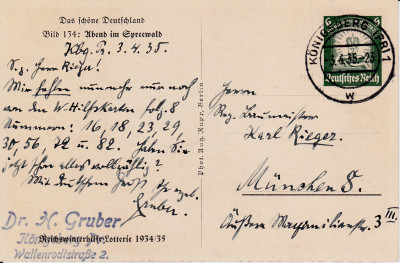 Das schöne Deutschland
Bild 154: Abend im Spreewald
Kbg. Pr. 3.4.35.
S. g. Herr Rieger!
Mir fehlen nunmehr nur noch
von den W. Hilfskarten folg. 8
Nummern: 16, 18, 23, 29,
30, 56, 72 u. 82. Haben Sie
jetzt schon alles vollzählig?
Mit deutschem Gruß Ihr ergeb.
Gruber.
Dr. H. Gruber
Königsberg/Pr.
Reichswinterhilfe-Lotterie 1934/35
Wallenrodtstraße 2.
Phot. Aug. Rupp, Berlin
KÖNIGSBERG (PR) 1
3.4.35
W
6
6
Deutsches Reich
Herrn
Reg. Baumeister
Karl Rieger.
München 8.
Äußere Maximilianstr. 3 III.